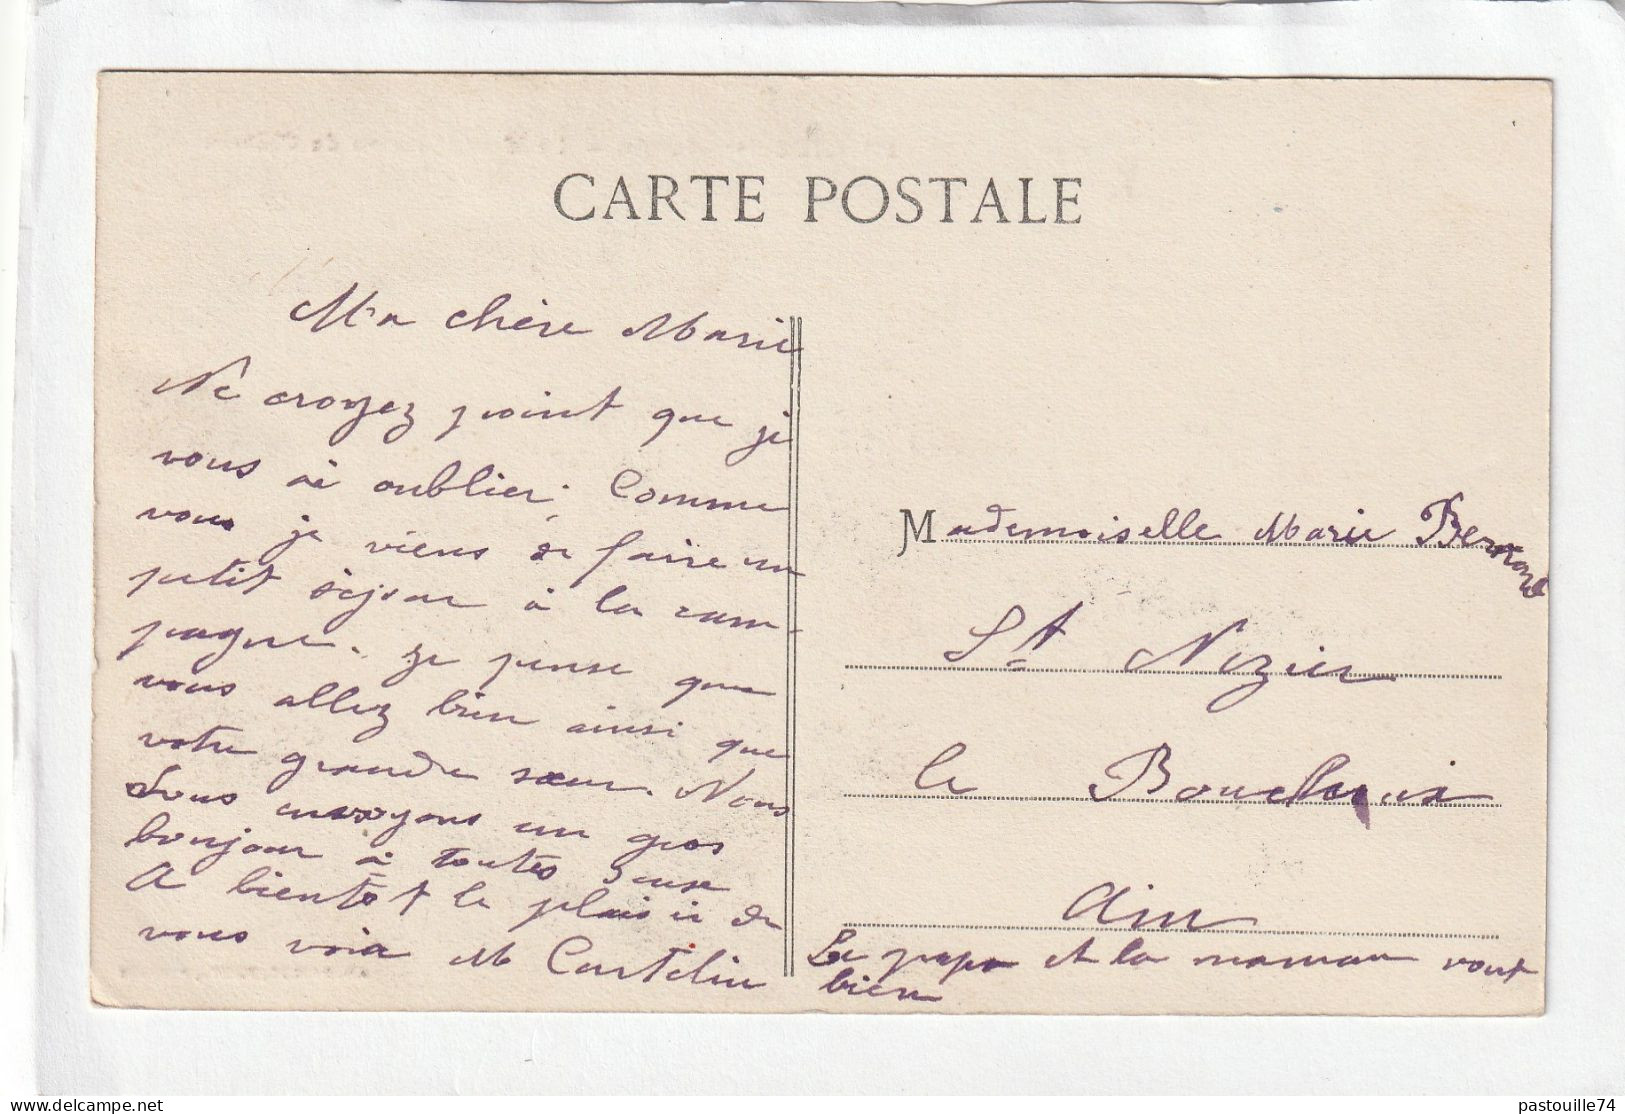 CARTE POSTALE
Ma chère Marie
Ne croyez point que je
vous ai oublier. Comme
vous je viens de faire un
petit séjour à la cam-
pagne. Je pense que
vous allez bien ainsi que
votre grande sœur. Nous
vous envoyons un gros
bonjour à toutes deux
A bientôt le plaisir de
vous voir M Castelin
Mademoiselle Marie Bernard
St Nizier
le Bouchoux
Ain
Le papa et la maman vont
bien
pastouille74